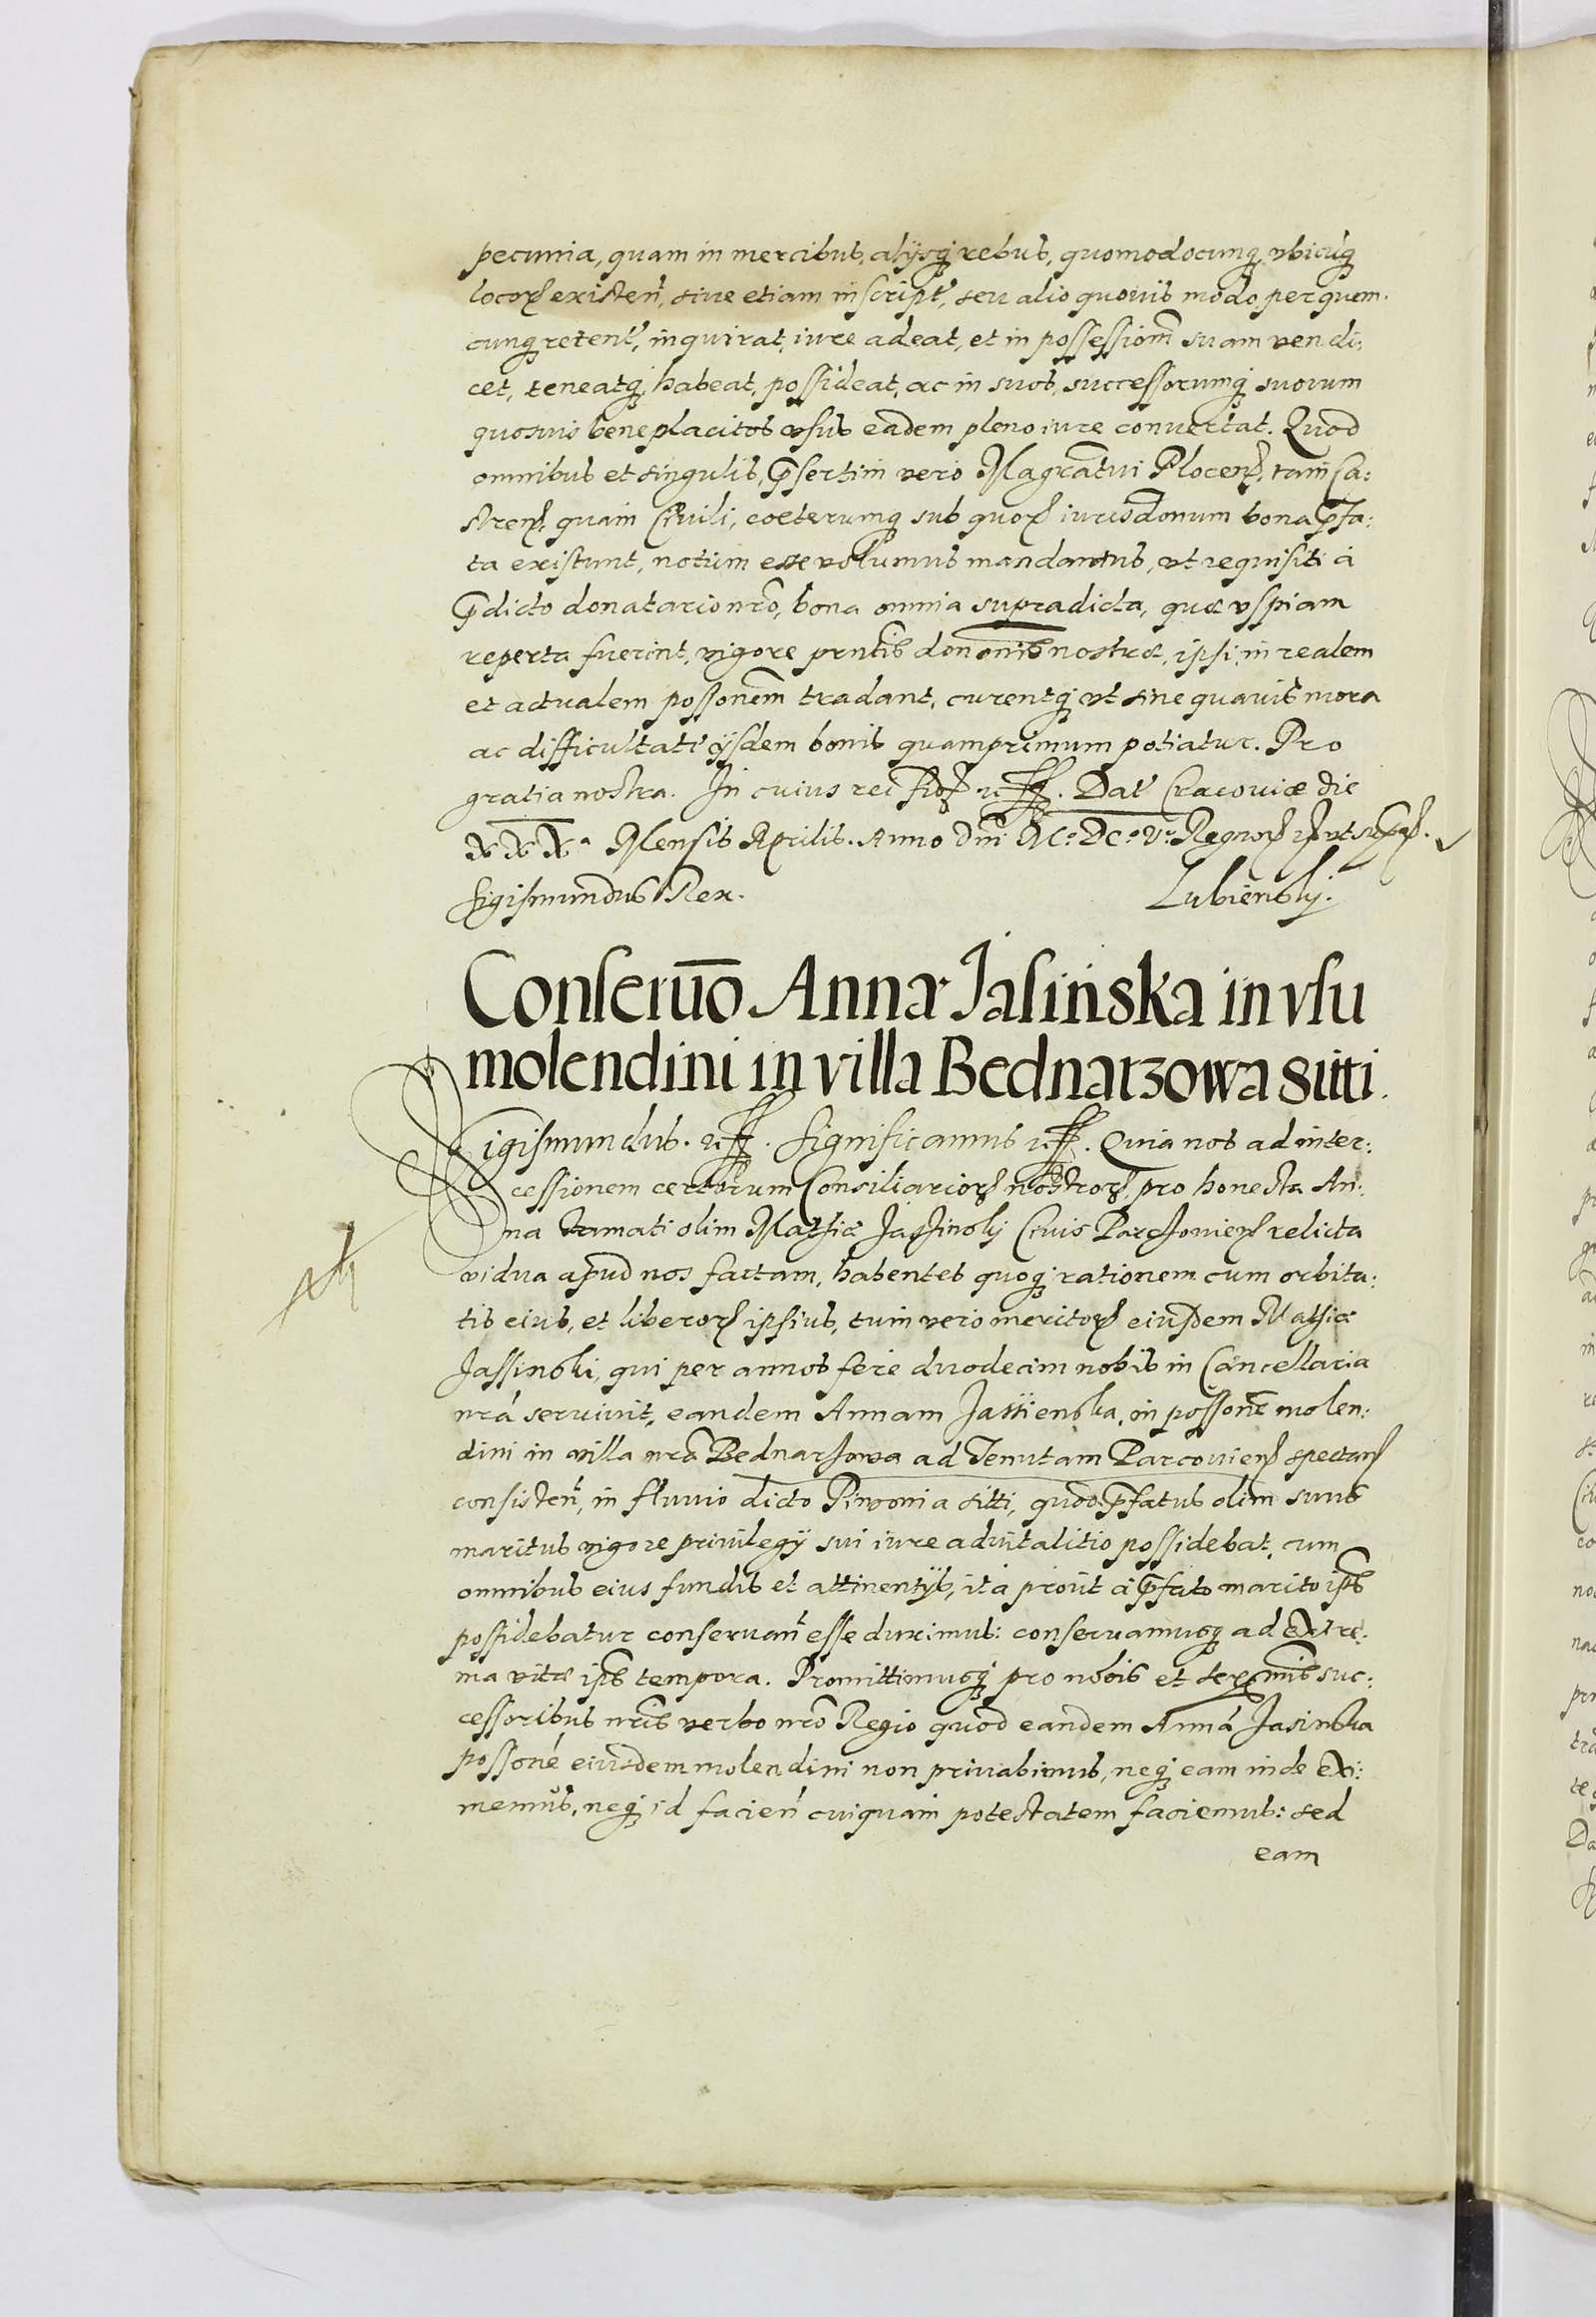 pecunia, quam in mercibus, alijsq₃ rebus, quomodocunq₃, vbicúq₃
locoꝝ existen̄, siue etiam inscript̄, seu alio quouis modo per quem.
cunq₃ retent̄, inquirat, iure adeat, et in possessiom̄ suam vendi:
cet, teneatq₃, habeat, possideat, ac in suos, successorumq₃ suorum
quosuis beneplacitos vsus eadem pleno iure conuertat. Quod
omnibus et singulis, p̄sertim vero Magrātui Plocenꝭ, tam Ca:
strenꝭ, quàm Ciuili, coeterumq₃ sub quoꝝ iurisdōnum bona p̄fa:
ta existunt, notum esse volumus mandamus, vt requisiti à
p̄dicto donatario nr̄o, bona omnia supradicta, quæ vspiam
reperta fuerint, vigore prn̄tis donōnis nostræ, ipsi, in realem
et actualem possōnem tradant, curentq₃ vt sine quauis mora
ac difficultate ijsdem bonis quamprimum potiatur. Pro
gratia nostra. In cuius rei fidꝭ etc. Dat̄ Cracouiæ die
XXXª Mensis Aprilis. Anno Dn̄i Mº Dcº Vº Regnoꝝ nr̄oꝝ vt supꝭ.
Sigismundus Rex. Lubiensky.
Conseruō Annæ Jasińska in vsu
molendini in villa Bednarzowa Sitti.
Sigismundus. etc. Significamus etc. Quia nos ad inter:
cessionem certorum Consiliarioꝝ nostroꝝ pro honesta An:
na famati olim Mathiæ Jassinsky Ciuis Parczouienꝭ relicta
vidua apud nos factam, habentes quoq₃ rationem cum orbita:
tis eius, et liberoꝝ ipsius, tum vero meritoꝝ eiusdem Mathiæ
Jassinski, qui per annos fere duodecim nobis in Cancellaria
nr̄á seruiuit, eandem Annam Jassienska, in possonē molen:
dini in villa nr̄a Bednarzowa ad Tenutam Parcouienꝭ spectanꝭ
consisten̄, in fluuio dicto Piwonia sitti, quod p̄fatus olim suus
maritus vigore priuilegij sui iure aduitalitio possidebat, cum
omnibus eius fundis et attinentijs, ita proút à p̄fato marito ips̄
possidebatur conseruan̄ esse duximus: conseruamusq₃ ad extre:
ma vitæ ips̄ tempora. Promittimusq₃ pro nobis et serēmis suc:
cessoribus nr̄is verbo nr̄o Regio quod eandem Anná Jasinska
possoné eiusdem molendini non priuabimus, neq₃ eam inde exi:
memus, neq₃ id facien̄ cuiquam potestatem faciemus: sed
eam